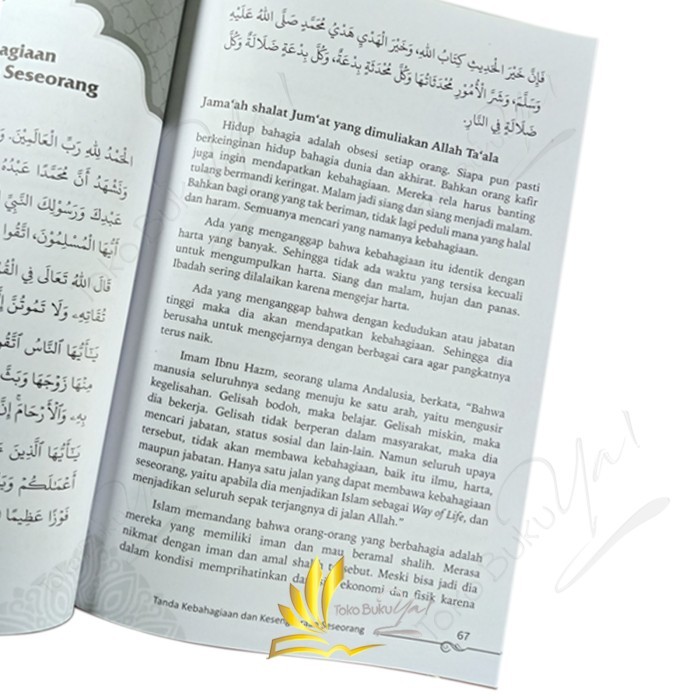 agiaan
Seseorang
الْحَمْدُ لِلهِ رَبِّ الْعَالَمِيْنَ. وَ
وَنَشْهَدُ أَنَّ مُحَمَّدًا عَبْدُهُ
عَبْدِكَ وَرَسُوْلِكَ النَّبِيِّ
أَيُّهَا الْمُسْلِمُوْنَ، اتَّقُوا
قَالَ اللهُ تَعَالَى فِي الْقُ
تُقَاتِهِ وَلَا تَمُوتُنَّ إِ
يَٰٓأَيُّهَا النَّاسُ اتَّقُو
مِنْهَا زَوْجَهَا وَبَثَّ
بِهِ وَالْأَرْحَامَ إِنَّ
يَٰٓأَيُّهَا الَّذِينَ
أَعْمَٰلَكُمْ وَيَ
فَوْزًا عَظِيمًا
فَإِنَّ خَيْرَ الْحَدِيثِ كِتَابُ اللهِ، وَخَيْرَ الْهَدْيِ هَدْيُ مُحَمَّدٍ صَلَّى اللهُ عَلَيْهِ
وَسَلَّمَ، وَشَرَّ الْأُمُوْرِ مُحْدَثَاتُهَا وَكُلَّ مُحْدَثَةٍ بِدْعَةٌ، وَكُلَّ بِدْعَةٍ ضَلَالَةٌ وَكُلَّ
ضَلَالَةٍ فِي النَّارِ.
Jama'ah shalat Jum'at yang dimuliakan Allah Ta'ala
Hidup bahagia adalah obsesi setiap orang. Siapa pun pasti
berkeinginan hidup bahagia dunia dan akhirat. Bahkan orang kafir
juga ingin mendapatkan kebahagiaan. Mereka rela harus banting
tulang bermandi keringat. Malam jadi siang dan siang menjadi malam.
Bahkan bagi orang yang tak beriman, tidak lagi peduli mana yang halal
dan haram. Semuanya mencari yang namanya kebahagiaan.
Ada yang menganggap bahwa kebahagiaan itu identik dengan
harta yang banyak. Sehingga tidak ada waktu yang tersisa kecuali
untuk mengumpulkan harta. Siang dan malam, hujan dan panas.
Ibadah sering dilalaikan karena mengejar harta.
Ada yang menganggap bahwa dengan kedudukan atau jabatan
tinggi maka dia akan mendapatkan kebahagiaan. Sehingga dia
berusaha untuk mengejarnya dengan berbagai cara agar pangkatnya
terus naik.
Imam Ibnu Hazm, seorang ulama Andalusia, berkata, "Bahwa
manusia seluruhnya sedang menuju ke satu arah, yaitu mengusir
kegelisahan. Gelisah bodoh, maka belajar. Gelisah miskin, maka
dia bekerja. Gelisah tidak berperan dalam masyarakat, maka dia
mencari jabatan, status sosial dan lain-lain. Namun seluruh upaya
tersebut, tidak akan membawa kebahagiaan, baik itu ilmu, harta,
maupun jabatan. Hanya satu jalan yang dapat membawa kebahagiaan
seseorang, yaitu apabila dia menjadikan Islam sebagai Way of Life, dan
menjadikan seluruh sepak terjangnya di jalan Allah."
Islam memandang bahwa orang-orang yang berbahagia adalah
mereka yang memiliki iman dan mau beramal shalih. Merasa
nikmat dengan iman dan amal shalih tersebut. Meski bisa jadi dia
dalam kondisi memprihatinkan dari sisi ekonomi dan fisik karena
Tanda Kebahagiaan dan Kesengsaraan Seseorang
67
Toko Buku Ya!